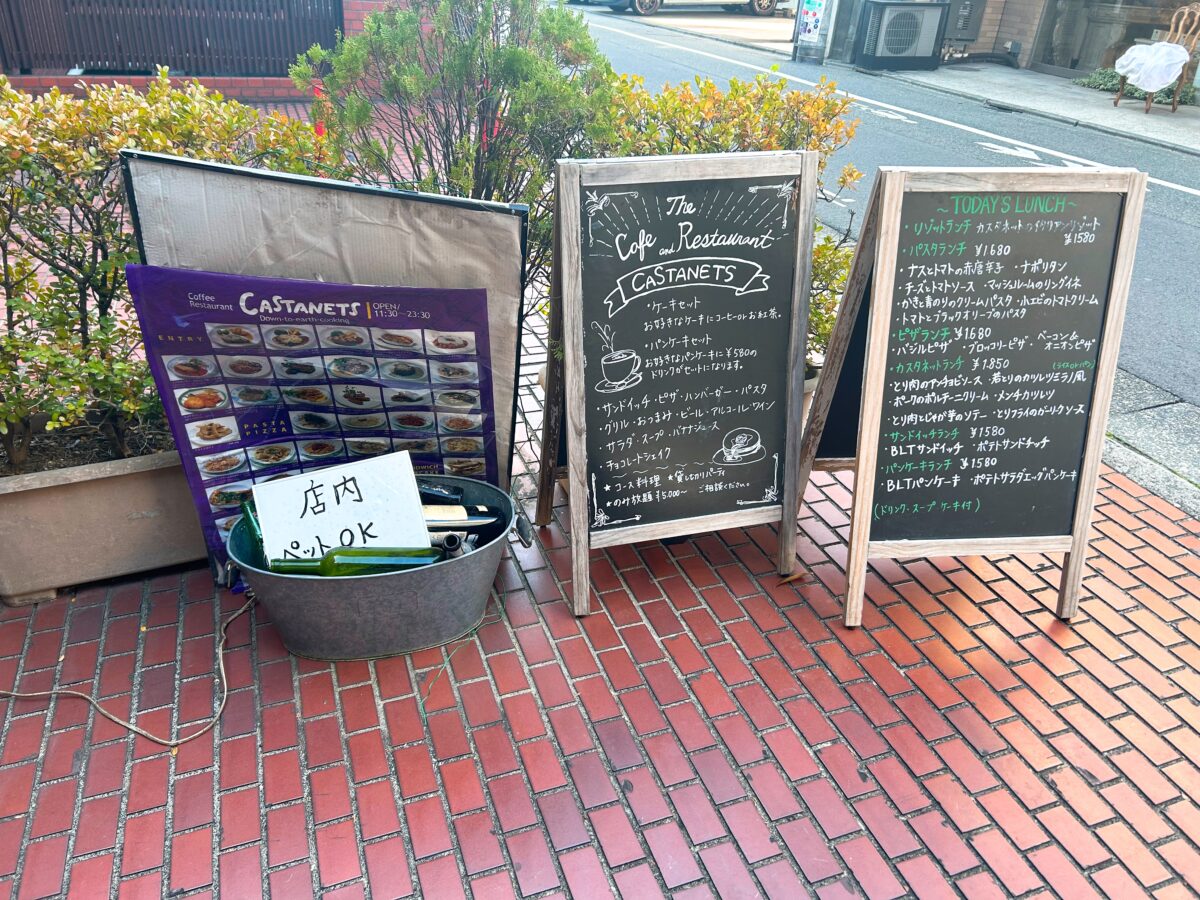 Coffee Restaurant CASTANETS
Down-to-earth-cooking
OPEN/
11:30~23:30
ENTRY
PASTA
PIZZA
店内
ペットOK
The
Cafe and Restaurant
CASTANETS
・ケーキセット
お好きなケーキにコーヒーor お紅茶。
・パンケーキセット
お好きなパンケーキに¥580の
ドリンクがセットになります。
・サンドイッチ・ピザ・ハンバーガー・パスタ
・グリル・おつまみ・ビール・アルコール・ワイン
・サラダ・スープ・バナナジュース
・チョコレートシェイク
★コース料理 ★貸し切りパーティ
★のみ放題¥5,000~ ご相談ください。
~TODAY'S LUNCH~
・リゾットランチ カスタネット
¥1580
・パスタランチ ¥1680
・ナスとトマトの赤唐辛子 ・ナポリタン
・チーズとトマトソース ・マッシュルームのリングイネ
・かきと青のりのクリームパスタ ・小エビのトマトクリーム
・トマトとブラックオリーブのパスタ
・ピザランチ ¥1680
・バジルピザ ・ブロッコリーピザ ・ベーコン&オニオンピザ
・カスタネットランチ ¥1.850 (ライスorパン)
・とり肉のアンチョビソース ・若とりのカツレツミラノ風
・ポークのポルチーニクリーム ・メンチカツレツ
・とり肉とじゃが芋のソテー ・とりフライのガーリックソース
・サンドイッチランチ ¥1580
・BLTサンドイッチ ・ポテトサンドイッチ
・パンケーキランチ ¥1580
・BLTパンケーキ ・ポテトサラダエッグパンケーキ
(ドリンク・スープ ケーキ付)